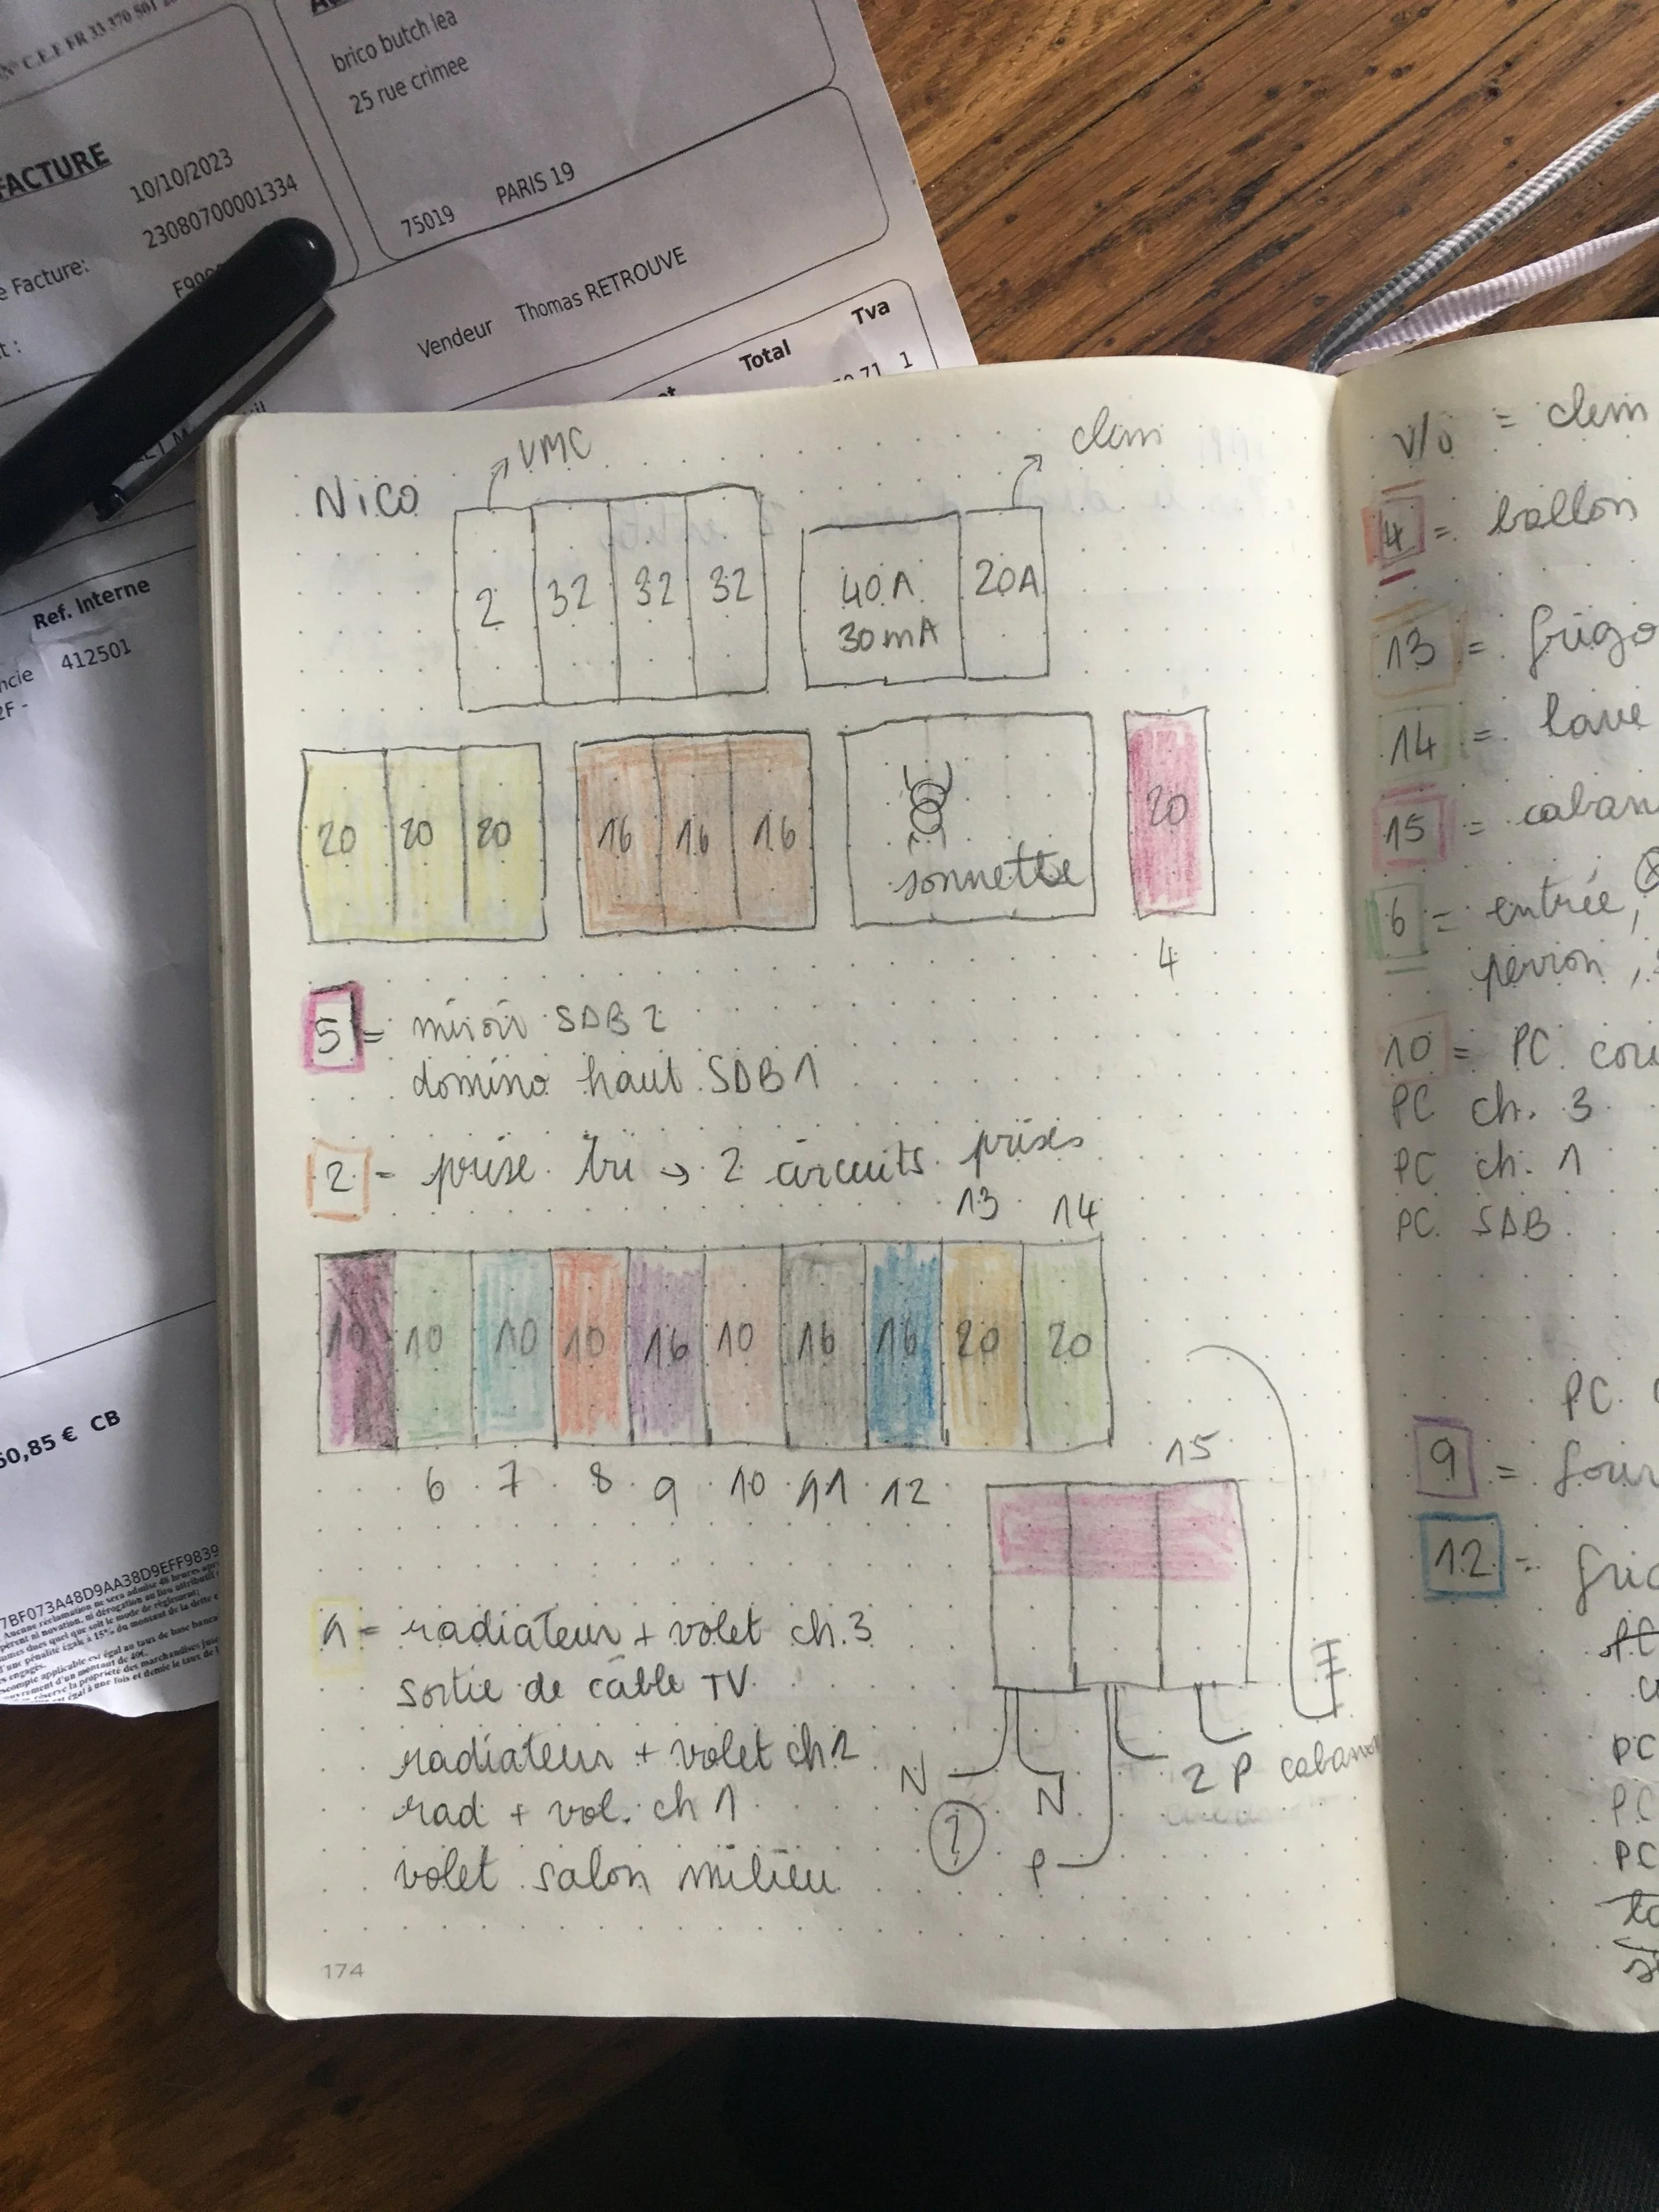 N° C.E.E FR 33 370 501
brico butch lea
25 rue crimee
75019 PARIS 19
FACTURE
10/10/2023
23080700001334
Facture:
Vendeur Thomas RETROUVE
Total Tva
1
Ref. Interne
412501
50,85 € CB
7BF073A48D9AA38D9EFF9839
Nico
VMC
clim
2 32 32 32
40A 20A
30mA
20 20 20
16 16 16
sonnette
20
4
5 = miroir SDB 2
domino haut SDB 1
2 = prise tri → 2 circuits prises
13 14
10 10 10 10 16 10 16 16 20 20
6 7 8 9 10 11 12
15
1 = radiateur + volet ch. 3
sortie de câble TV
radiateur + volet ch 2
rad + vol. ch 1
volet salon milieu
N
N
?
P
2 P cabanon
174
= clim
4 = ballon
13 = frigo
14 = lave
15 = caban
6 = entrée,
perron,
10 = PC
PC ch. 3
PC ch. 1
PC SDB
PC
9 = four
12 =
PC
PC
PC
PC